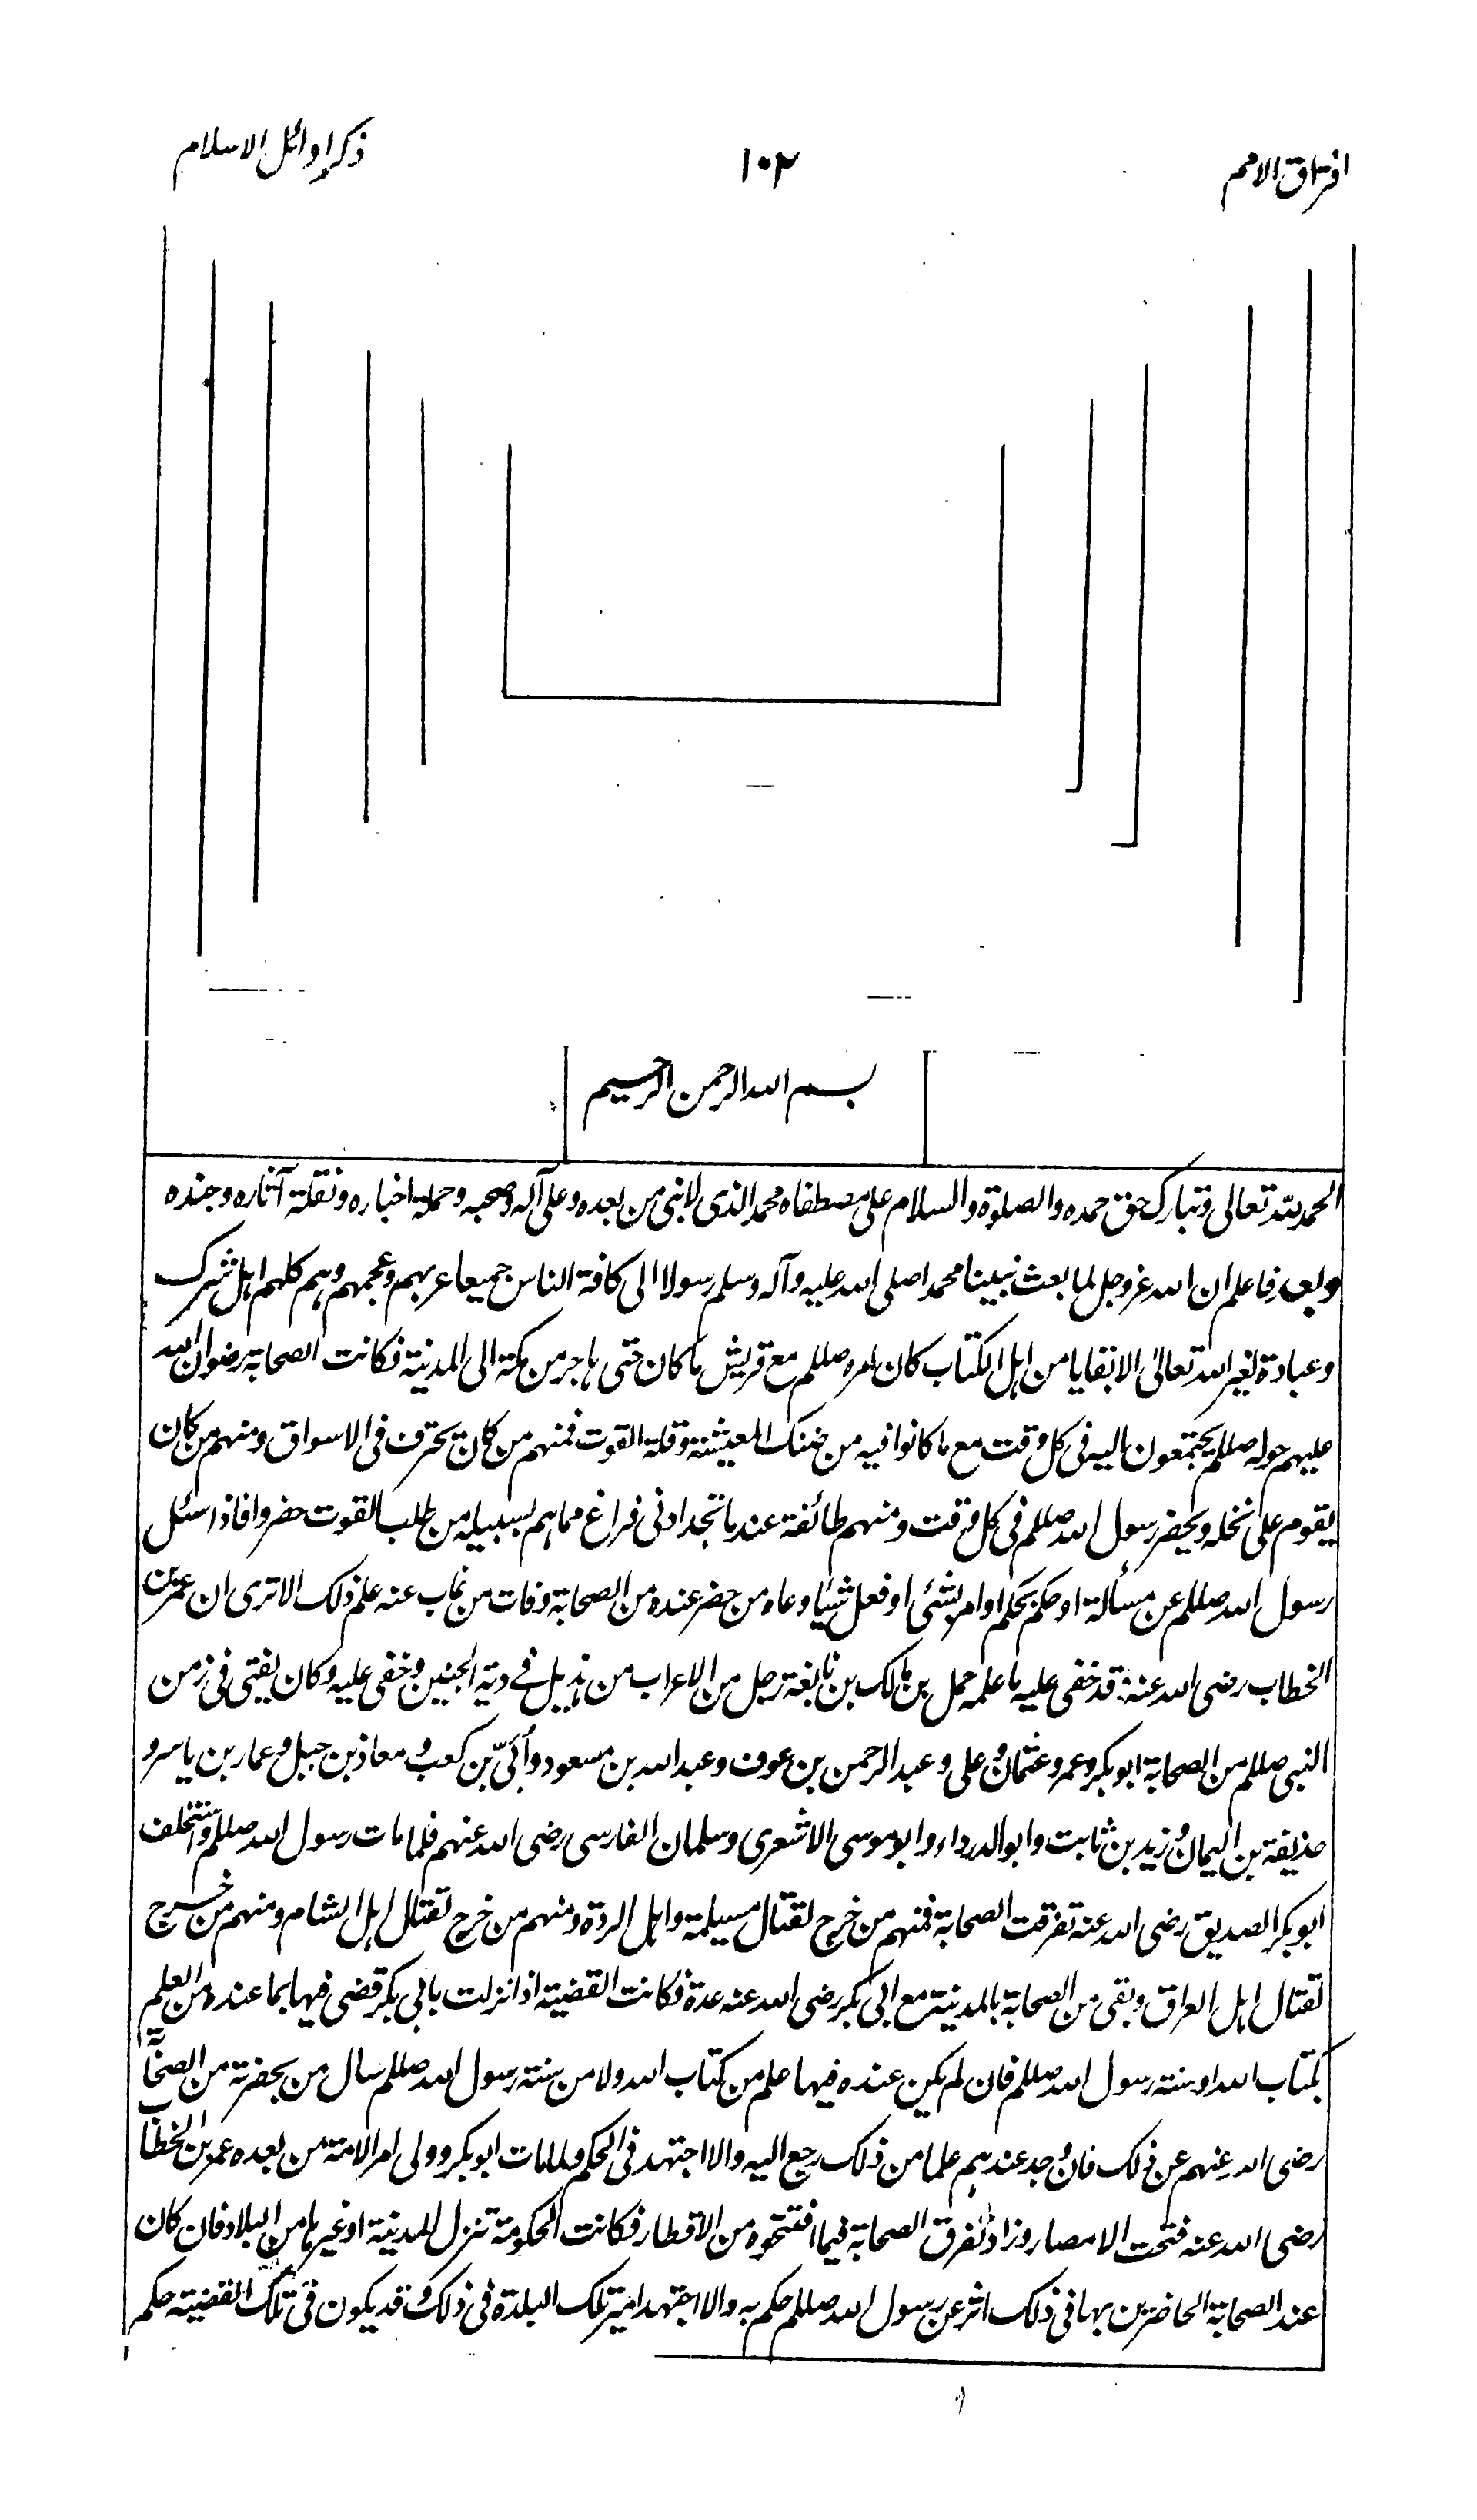 افتراق الامم
١٠٢
ذكر اوائل الاسلام
بسم الله الرحمن الرحيم
الحمد لله تعالى وتبارك حق حمده والصلوة والسلام على مصطفاه محمد الذى لا نبى من بعده وعلى آله وصحبه وحملة اخباره ونقلة آثاره وجنده
وبعد فاعلم ان الله عزوجل لما بعث نبينا محمدا صلى الله عليه وآله وسلم رسولا الى كافة الناس جميعا عربهم وعجمهم وهم كلهم اهل شرك
وعبادة لغير الله تعالىٰ الا بقايا من اهل الكتاب كان امره صللم مع قريش ما كان حتى هاجر من مكة الى المدينة فكانت الصحابة رضوان الله
عليهم حوله صللم يجتمعون اليه فى كل وقت مع ما كانوا فيه من ضنك المعيشة وقلة القوت فمنهم من كان يحترف فى الاسواق ومنهم من كان
يقوم على نخله ويحضر رسول الله صللم فى كل وقت ومنهم طائفة عند ما تجد ادنى فراغ مما هم بسبيله من طلب القوت حضروا فاذا سئل
رسول الله صللم عن مسألة او حكم بحكم او امر بشئى او فعل شيئا وعاه من حضر عنده من الصحابة وفات من غاب عنه علم ذلك الا ترى ان عمر بن
الخطاب رضى الله عنه قد خفى عليه ما علمه حمل بن مالك بن نابغة رجل من الاعراب من هذيل فے دية الجنين وخفى عليه وكان يفتى فى زمن
النبى صللم من الصحابة ابوبكر وعمر وعثمان وعلى وعبد الرحمن بن عوف وعبد الله بن مسعود وأُبىّ بن كعب ومعاذ بن جبل وعمار بن ياسر و
حذيفة بن اليمان وزيد بن ثابت وابو الدرداء وابو موسى الاشعرى وسلمان الفارسى رضى الله عنهم فلما مات رسول الله صللم واستخلف
ابوبكر الصديق رضى الله عنه تفرقت الصحابة فمنهم من خرج لقتال مسيلمة واهل الردة ومنهم من خرج لقتال اهل الشام ومنهم من خرج
لقتال اهل العراق وبقى من الصحابة بالمدينة مع ابى بكر رضى الله عنه عدة فكانت القضية اذا نزلت بابى بكر قضى فيها بما عنده من العلم
بكتاب الله او سنة رسول الله صللم فان لم يكن عنده فيها علم من كتاب الله ولا من سنة رسول الله صللم سال من بحضرته من الصحابة
رضى الله عنهم عن ذلك فان وجد عندهم علما من ذلك رجع اليه والا اجتهد فى الحكم ولما مات ابوبكر وولى امر الامة من بعده عمر بن الخطاب
رضى الله عنه فتحت الامصار وزاد تفرق الصحابة فيما افتتحوه من الاقطار فكانت الحكومة تنزل المدينة او غيرها من البلاد فان كان
عند الصحابة الحاضرين بها فى ذلك اثر عن رسول الله صللم حكم به والا اجتهد امير تلك البلدة فى ذلك وقد يكون فى تلك القضية حكم